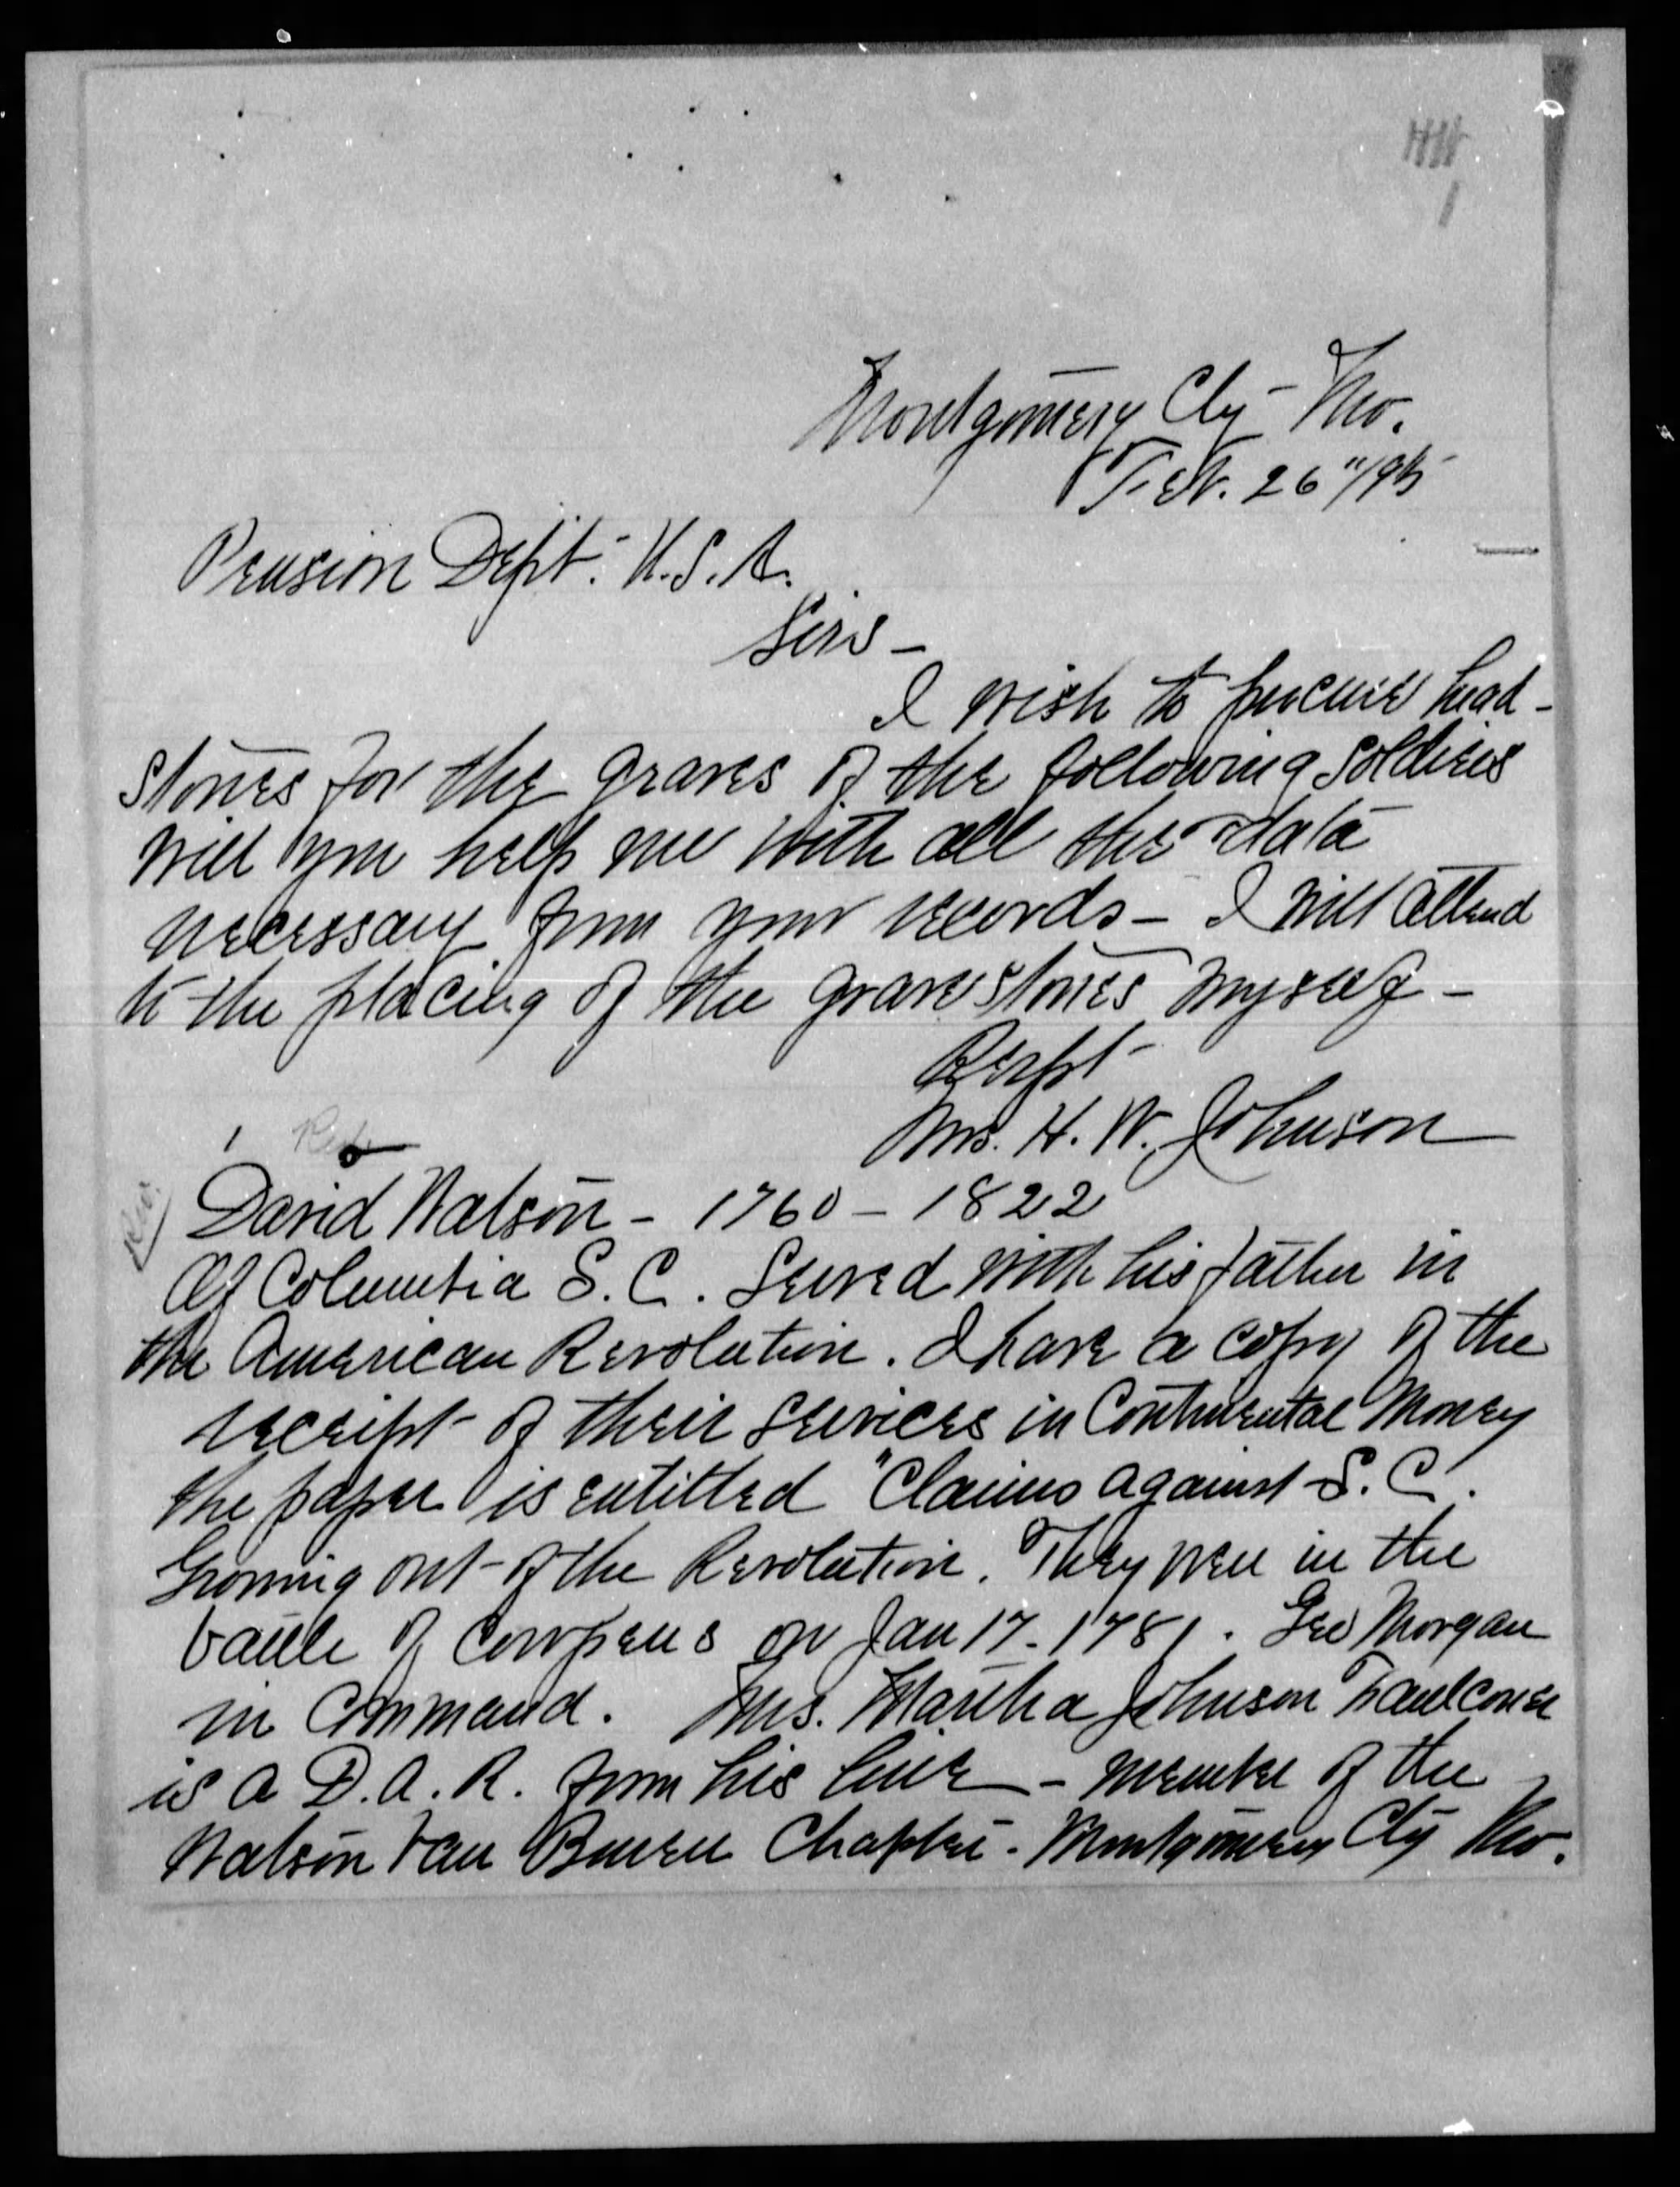 Montgomery Cty - Mo.
Feb. 26"/
Pension Dept. U.S.A.
Sirs -
I wish to procure head-
stones for the graves of the following soldiers
will you help me with all the data
necessary from your records - I will attend
to the placing of the grave stones myself -
Respt -
Mrs. H. W. Johnson
1
Rev.
David Watson - 1760 - 1822
Of Columbia S.C. Served with his father in
the American Revolution. I have a copy of the
receipt of their services in Continental Money
the paper is entitled "Claims against S.C.
Growing out of the Revolution. They were in the
battle of Cowpens on Jan 17 - 1781. Gen Morgan
in Command. Mrs. Martha Johnson Faulconer
is a D.A.R. from his line - member of the
Watson Van Buren Chapter - Montgomery Cty Mo.